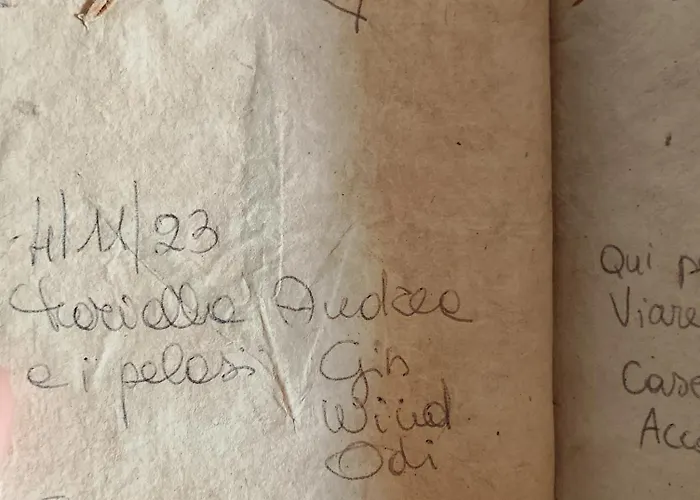 4/11/23
Fiorella Andrea
e i pelosi Gis
Wind
Odi
Qui p
Viare
Case
Acco